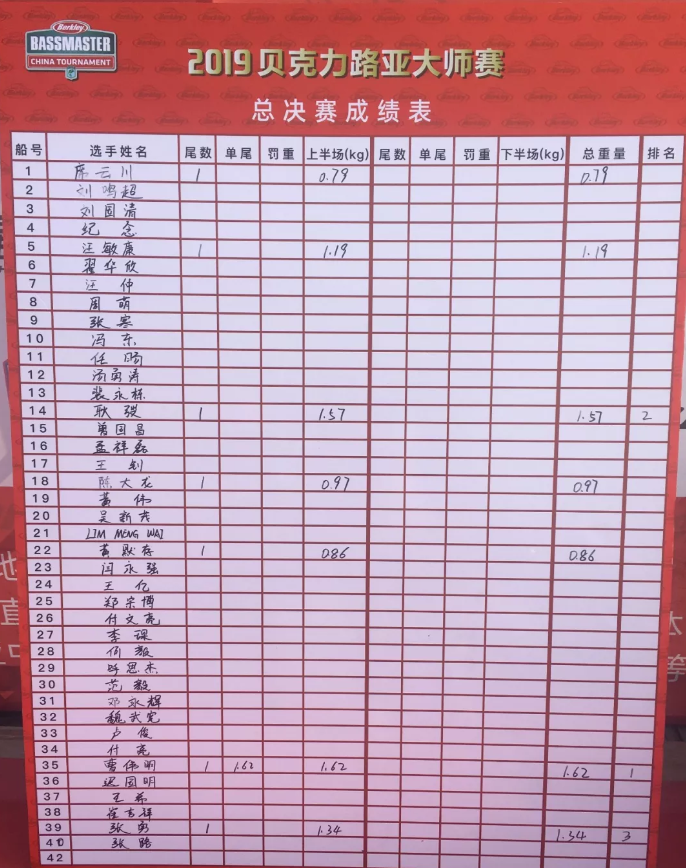 Berkley
BASSMASTER
CHINA TOURNAMENT
2019贝克力路亚大师赛
总决赛成绩表
船号 选手姓名 尾数 单尾 罚重 上半场(kg) 尾数 单尾 罚重 下半场(kg) 总重量 排名
1 席云川 1 0.79 0.79
2 刘鸣超
3 刘国清
4 纪念
5 汪敏康 1 1.19 1.19
6 翟华欣
7 汪仲
8 周萌
9 张寒
10 冯东
11 任旸
12 汤勇涛
13 裴永栋
14 耿强 1 1.57 1.57 2
15 曾国昌
16 孟祥磊
17 王钊
18 陈大龙 1 0.97 0.97
19 黄伟
20 吴新茂
21 LIM MENG WAI
22 黄耿存 1 0.86 0.86
23 闫永强
24 王亿
25 郑宗博
26 付文亮
27 李琛
28 何毅
29 思杰
30 范毅
31 邓永辉
32 魏武宪
33 卢俊
34 付亮
35 曹伟明 1 1.62 1.62 1.62 1
36 迟国明
37 王希
38 崔吉祥
39 张勇 1 1.34 1.34 3
40 张路
42